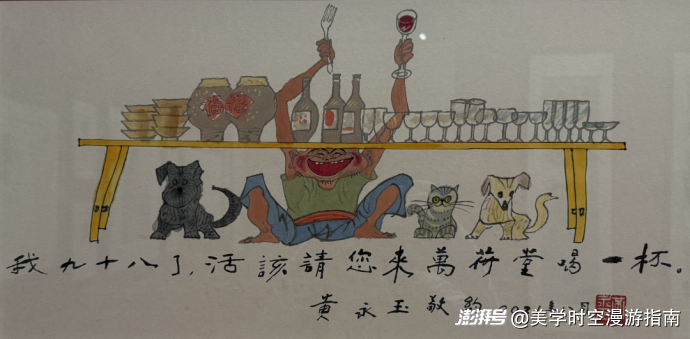 我九十八了，活該請您来萬荷堂喝一杯。
黄永玉敬約
澎湃号 @美学时空漫游指南